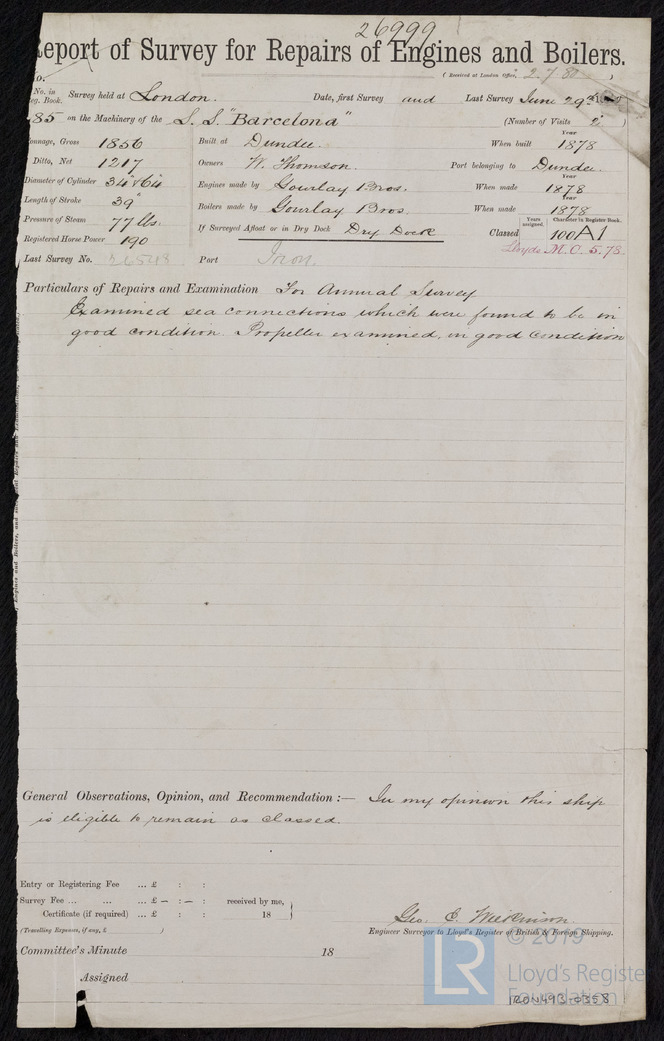 26999
eport of Survey for Repairs of Engines and Boilers.
o. (Received at London Office, 2.7.80 )
No. in eg. Book. Survey held at London. Date, first Survey and Last Survey June 29th
85 on the Machinery of the S.S. "Barcelona" (Number of Visits 2 )
onnage, Gross 1856 Built at Dundee. When built Year 1878
Ditto, Net 1217 Owners W. Thomson. Port belonging to Dundee.
Diameter of Cylinder 34" & 64" Engines made by Gourlay Bros. When made Year 1878
Length of Stroke 39" Boilers made by Gourlay Bros. When made Year 1878
Pressure of Steam 77 lbs. If Surveyed Afloat or in Dry Dock Dry Dock Classed Years assigned. 100 Character in Register Book. A1
Registered Horse Power 190 Lloyds M.C. 5.78.
Last Survey No. 26548 Port Iron.
Particulars of Repairs and Examination For Annual Survey
Examined sea connections which were found to be in
good condition. Propeller examined, in good condition
General Observations, Opinion, and Recommendation :— In my opinion this ship
is eligible to remain as classed.
Entry or Registering Fee ... £ : :
Survey Fee ... ... ... £ – : – : received by me,
Certificate (if required) ... £ : : 18
(Travelling Expenses, if any, £ )
Geo. E.
Engineer Surveyor to Lloyd's Register of British & Foreign Shipping.
Committee's Minute 18
Assigned
LR © 2019
Lloyd's Registe
Foundation
IRON493-0358